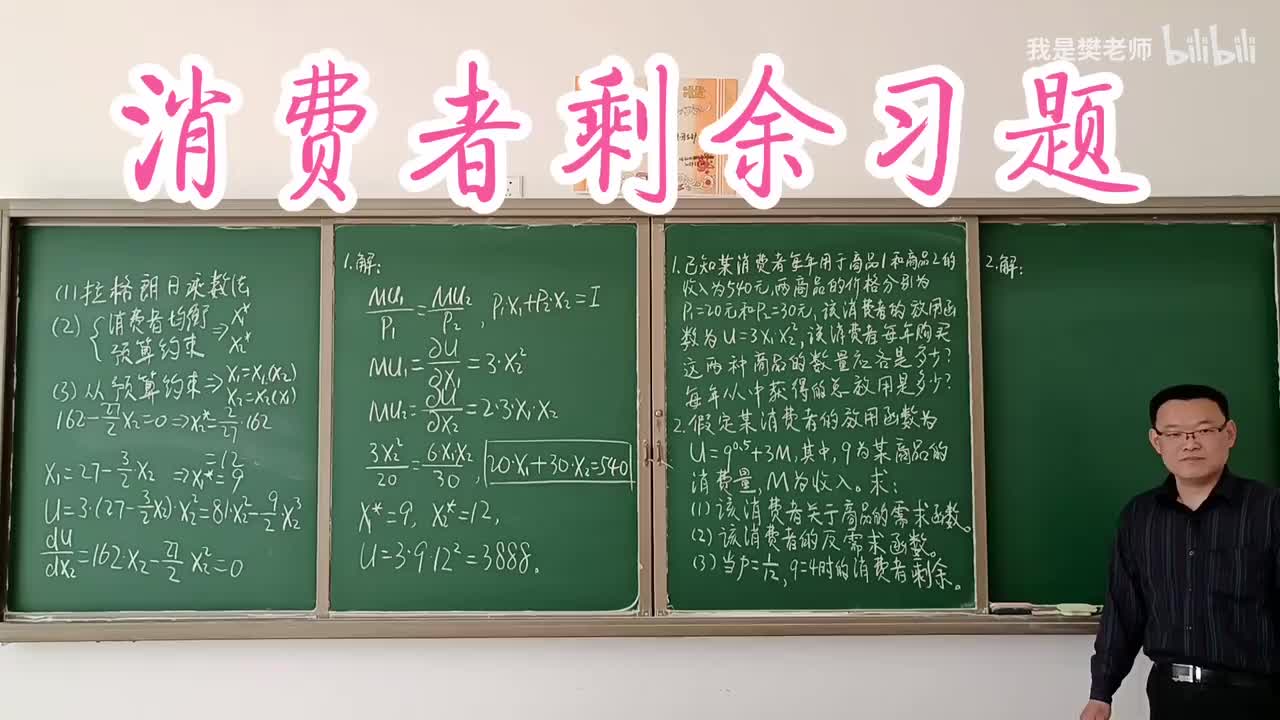 我是樊老师 bilibili
消费者剩余习题
(1)拉格朗日乘数法
(2) { 消费者均衡 ⇒ X₁*
预算约束 X₂*
(3)从预算约束⇒ X₁=X₁(X₂)
X₂=X₂(X₁)
162-27/2 X₂=0⇒X₂*=2/27·162
=12
X₁=27-3/2 X₂ ⇒X₁*=9
U=3·(27-3/2 X₂)·X₂²=81·X₂²-9/2 X₂³
dU/dX₂=162X₂-27/2 X₂²=0
1.解:
MU₁/P₁=MU₂/P₂, P₁·X₁+P₂·X₂=I
MU₁=∂U/∂X₁=3·X₂²
MU₂=∂U/∂X₂=2·3·X₁·X₂
3X₂²/20=6X₁X₂/30, 20·X₁+30·X₂=540
X*=9, X₂*=12,
U=3·9·12²=3888。
1.已知某消费者每年用于商品1和商品2的
收入为540元,两商品的价格分别为
P₁=20元和P₂=30元,该消费者的效用函
数为U=3X₁X₂²,该消费者每年购买
这两种商品的数量应各是多少?
每年从中获得的总效用是多少?
2.假定某消费者的效用函数为
U=q^0.5+3M,其中,q为某商品的
消费量,M为收入。求:
(1)该消费者关于商品的需求函数。
(2)该消费者的反需求函数。
(3)当p=1/12,q=4时的消费者剩余。
2.解: